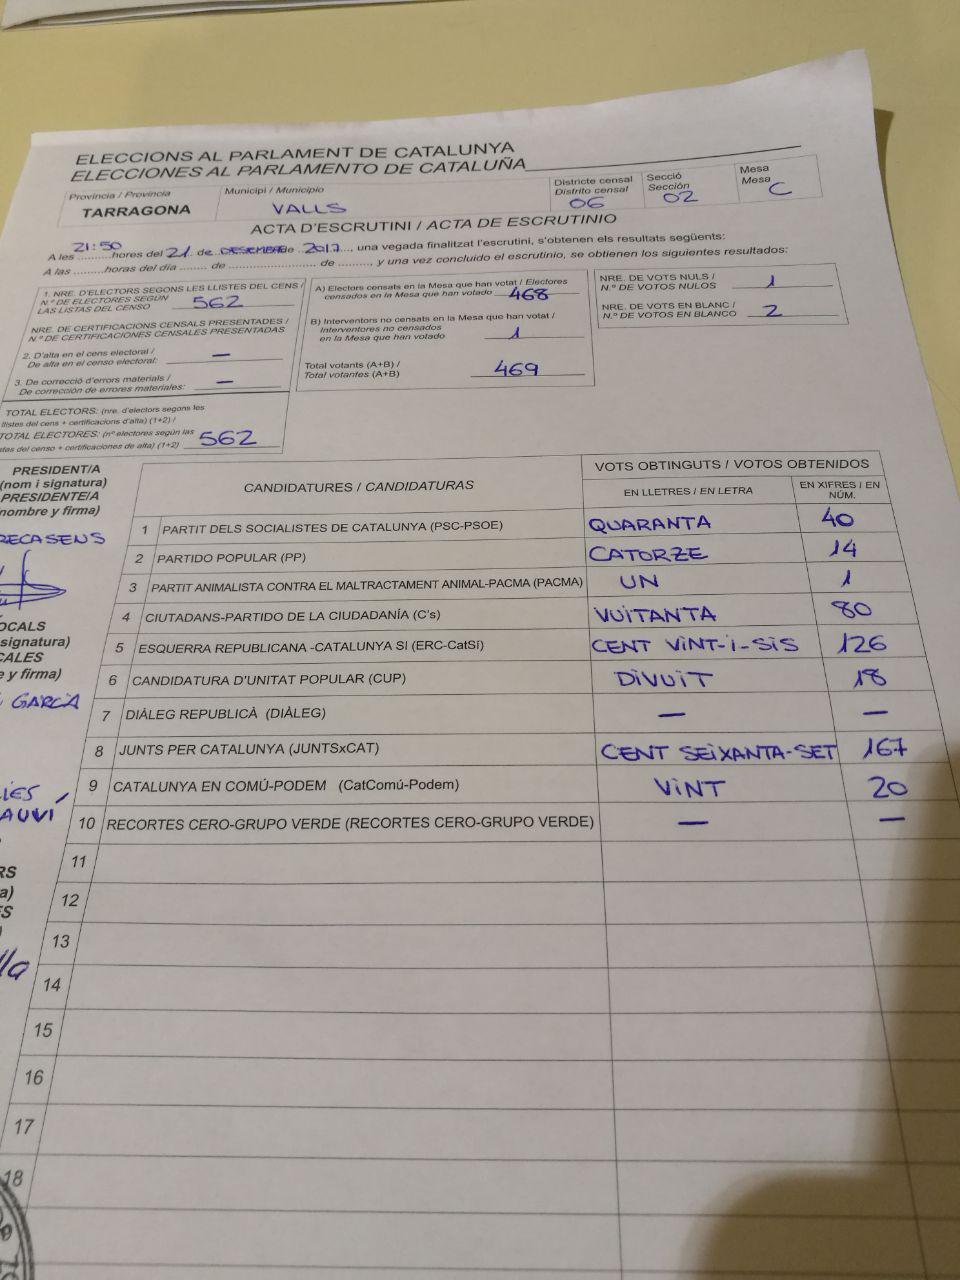 ELECCIONS AL PARLAMENT DE CATALUNYA
ELECCIONES AL PARLAMENTO DE CATALUÑA
Província / Provincia
TARRAGONA
Municipi / Municipio
VALLS
Districte censal
Distrito censal
06
Secció
Sección
02
Mesa
Mesa
C
ACTA D'ESCRUTINI / ACTA DE ESCRUTINIO
A les 21:50 hores del 21 de DESEMBRE de 2017, una vegada finalitzat l'escrutini, s'obtenen els resultats següents:
A las ......... horas del día ........ de .......................... de .........., y una vez concluido el escrutinio, se obtienen los siguientes resultados:
1. NRE. D'ELECTORS SEGONS LES LLISTES DEL CENS /
N.º DE ELECTORES SEGÚN
LAS LISTAS DEL CENSO 562
NRE. DE CERTIFICACIONS CENSALS PRESENTADES /
N.º DE CERTIFICACIONES CENSALES PRESENTADAS
2. D'alta en el cens electoral /
De alta en el censo electoral: —
3. De correcció d'errors materials /
De corrección de errores materiales: —
TOTAL ELECTORS: (nre. d'electors segons les
llistes del cens + certificacions d'alta) (1+2) /
TOTAL ELECTORES: (nº electores según las
tas del censo + certificaciones de alta) (1+2) 562
A) Electors censats en la Mesa que han votat / Electores
censados en la Mesa que han votado 468
B) Interventors no censats en la Mesa que han votat /
Interventores no censados
en la Mesa que han votado 1
Total votants (A+B) /
Total votantes (A+B) 469
NRE. DE VOTS NULS /
N.º DE VOTOS NULOS 1
NRE. DE VOTS EN BLANC /
N.º DE VOTOS EN BLANCO 2
PRESIDENT/A
(nom i signatura)
PRESIDENTE/A
nombre y firma)
RECASENS
OCALS
signatura)
CALES
e y firma)
GARCÍA
RS
a)
ES
)
CANDIDATURES / CANDIDATURAS
VOTS OBTINGUTS / VOTOS OBTENIDOS
EN LLETRES / EN LETRA
EN XIFRES / EN
NÚM.
1 PARTIT DELS SOCIALISTES DE CATALUNYA (PSC-PSOE) QUARANTA 40
2 PARTIDO POPULAR (PP) CATORZE 14
3 PARTIT ANIMALISTA CONTRA EL MALTRACTAMENT ANIMAL-PACMA (PACMA) UN 1
4 CIUTADANS-PARTIDO DE LA CIUDADANÍA (C's) VUITANTA 80
5 ESQUERRA REPUBLICANA -CATALUNYA SI (ERC-CatSí) CENT VINT-I-SIS 126
6 CANDIDATURA D'UNITAT POPULAR (CUP) DIVUIT 18
7 DIÀLEG REPUBLICÀ (DIÀLEG) — —
8 JUNTS PER CATALUNYA (JUNTSxCAT) CENT SEIXANTA-SET 167
9 CATALUNYA EN COMÚ-PODEM (CatComú-Podem) VINT 20
10 RECORTES CERO-GRUPO VERDE (RECORTES CERO-GRUPO VERDE) — —
11
12
13
14
15
16
17
18